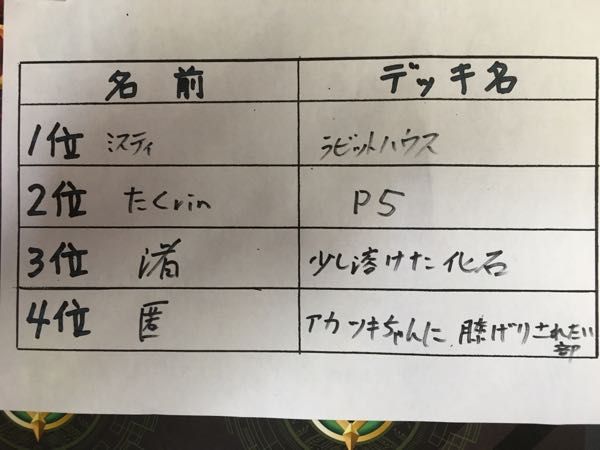 名前 デッキ名
1位 ミスティ ラビットハウス
2位 たくrin P5
3位 渚 少し溶けた化石
4位 匿 アカツキちゃんに膝げりされたい
部